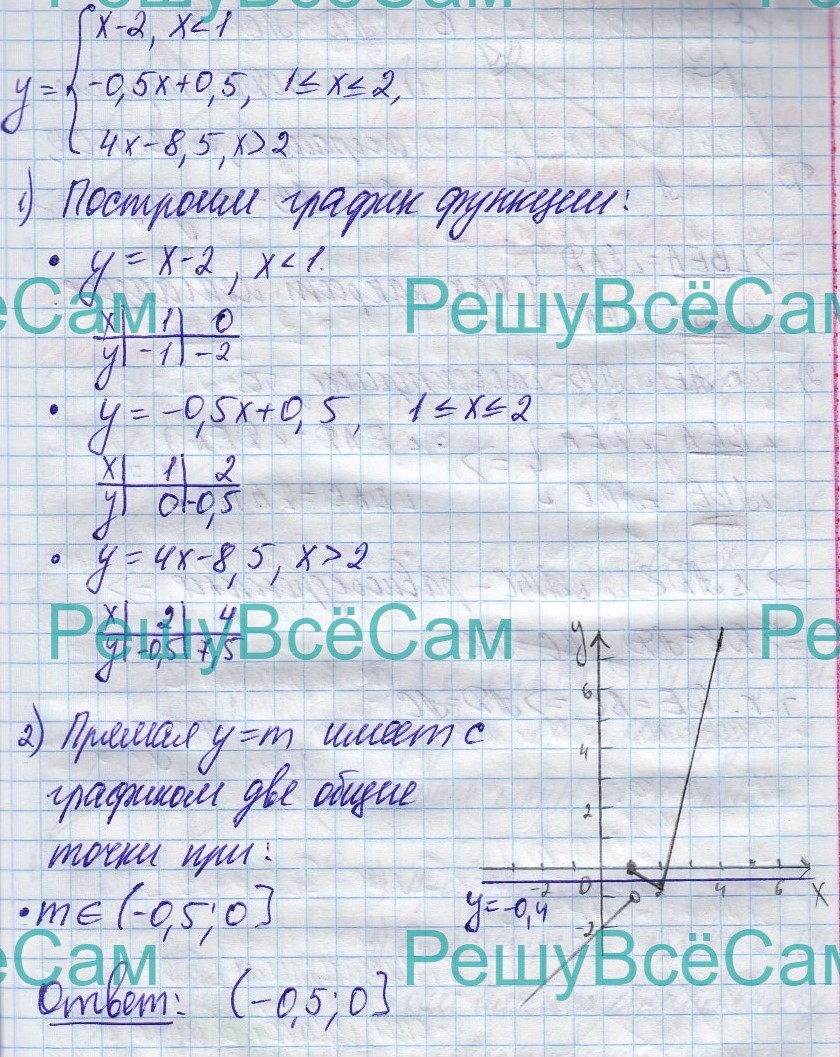 РешуВсёСам
y = { x-2, x<1
-0,5x+0,5, 1≤x≤2,
4x-8,5, x>2
1) Построим график функции:
• y = x-2, x<1.
еСам РешуВсёСам
x | 1 | 0
y | -1 | -2
• y = -0,5x+0,5, 1≤x≤2
x | 1 | 2
y | 0 | -0,5
• y = 4x-8,5, x>2
РешуВсёСам Ре
x | 2 | 4
y | -0,5 | 7,5
2) Прямая y=m имеет с
графиком две общие
точки при:
• m ∈ (-0,5; 0]
еСам РешуВсёСам
Ответ: (-0,5; 0]
y
6
4
2
-2 0 2 4 6 x
y=-0,4
-2